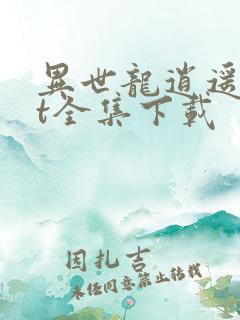 異世龍逍遥
t全集下载
因扎吉
未经同意禁止转载